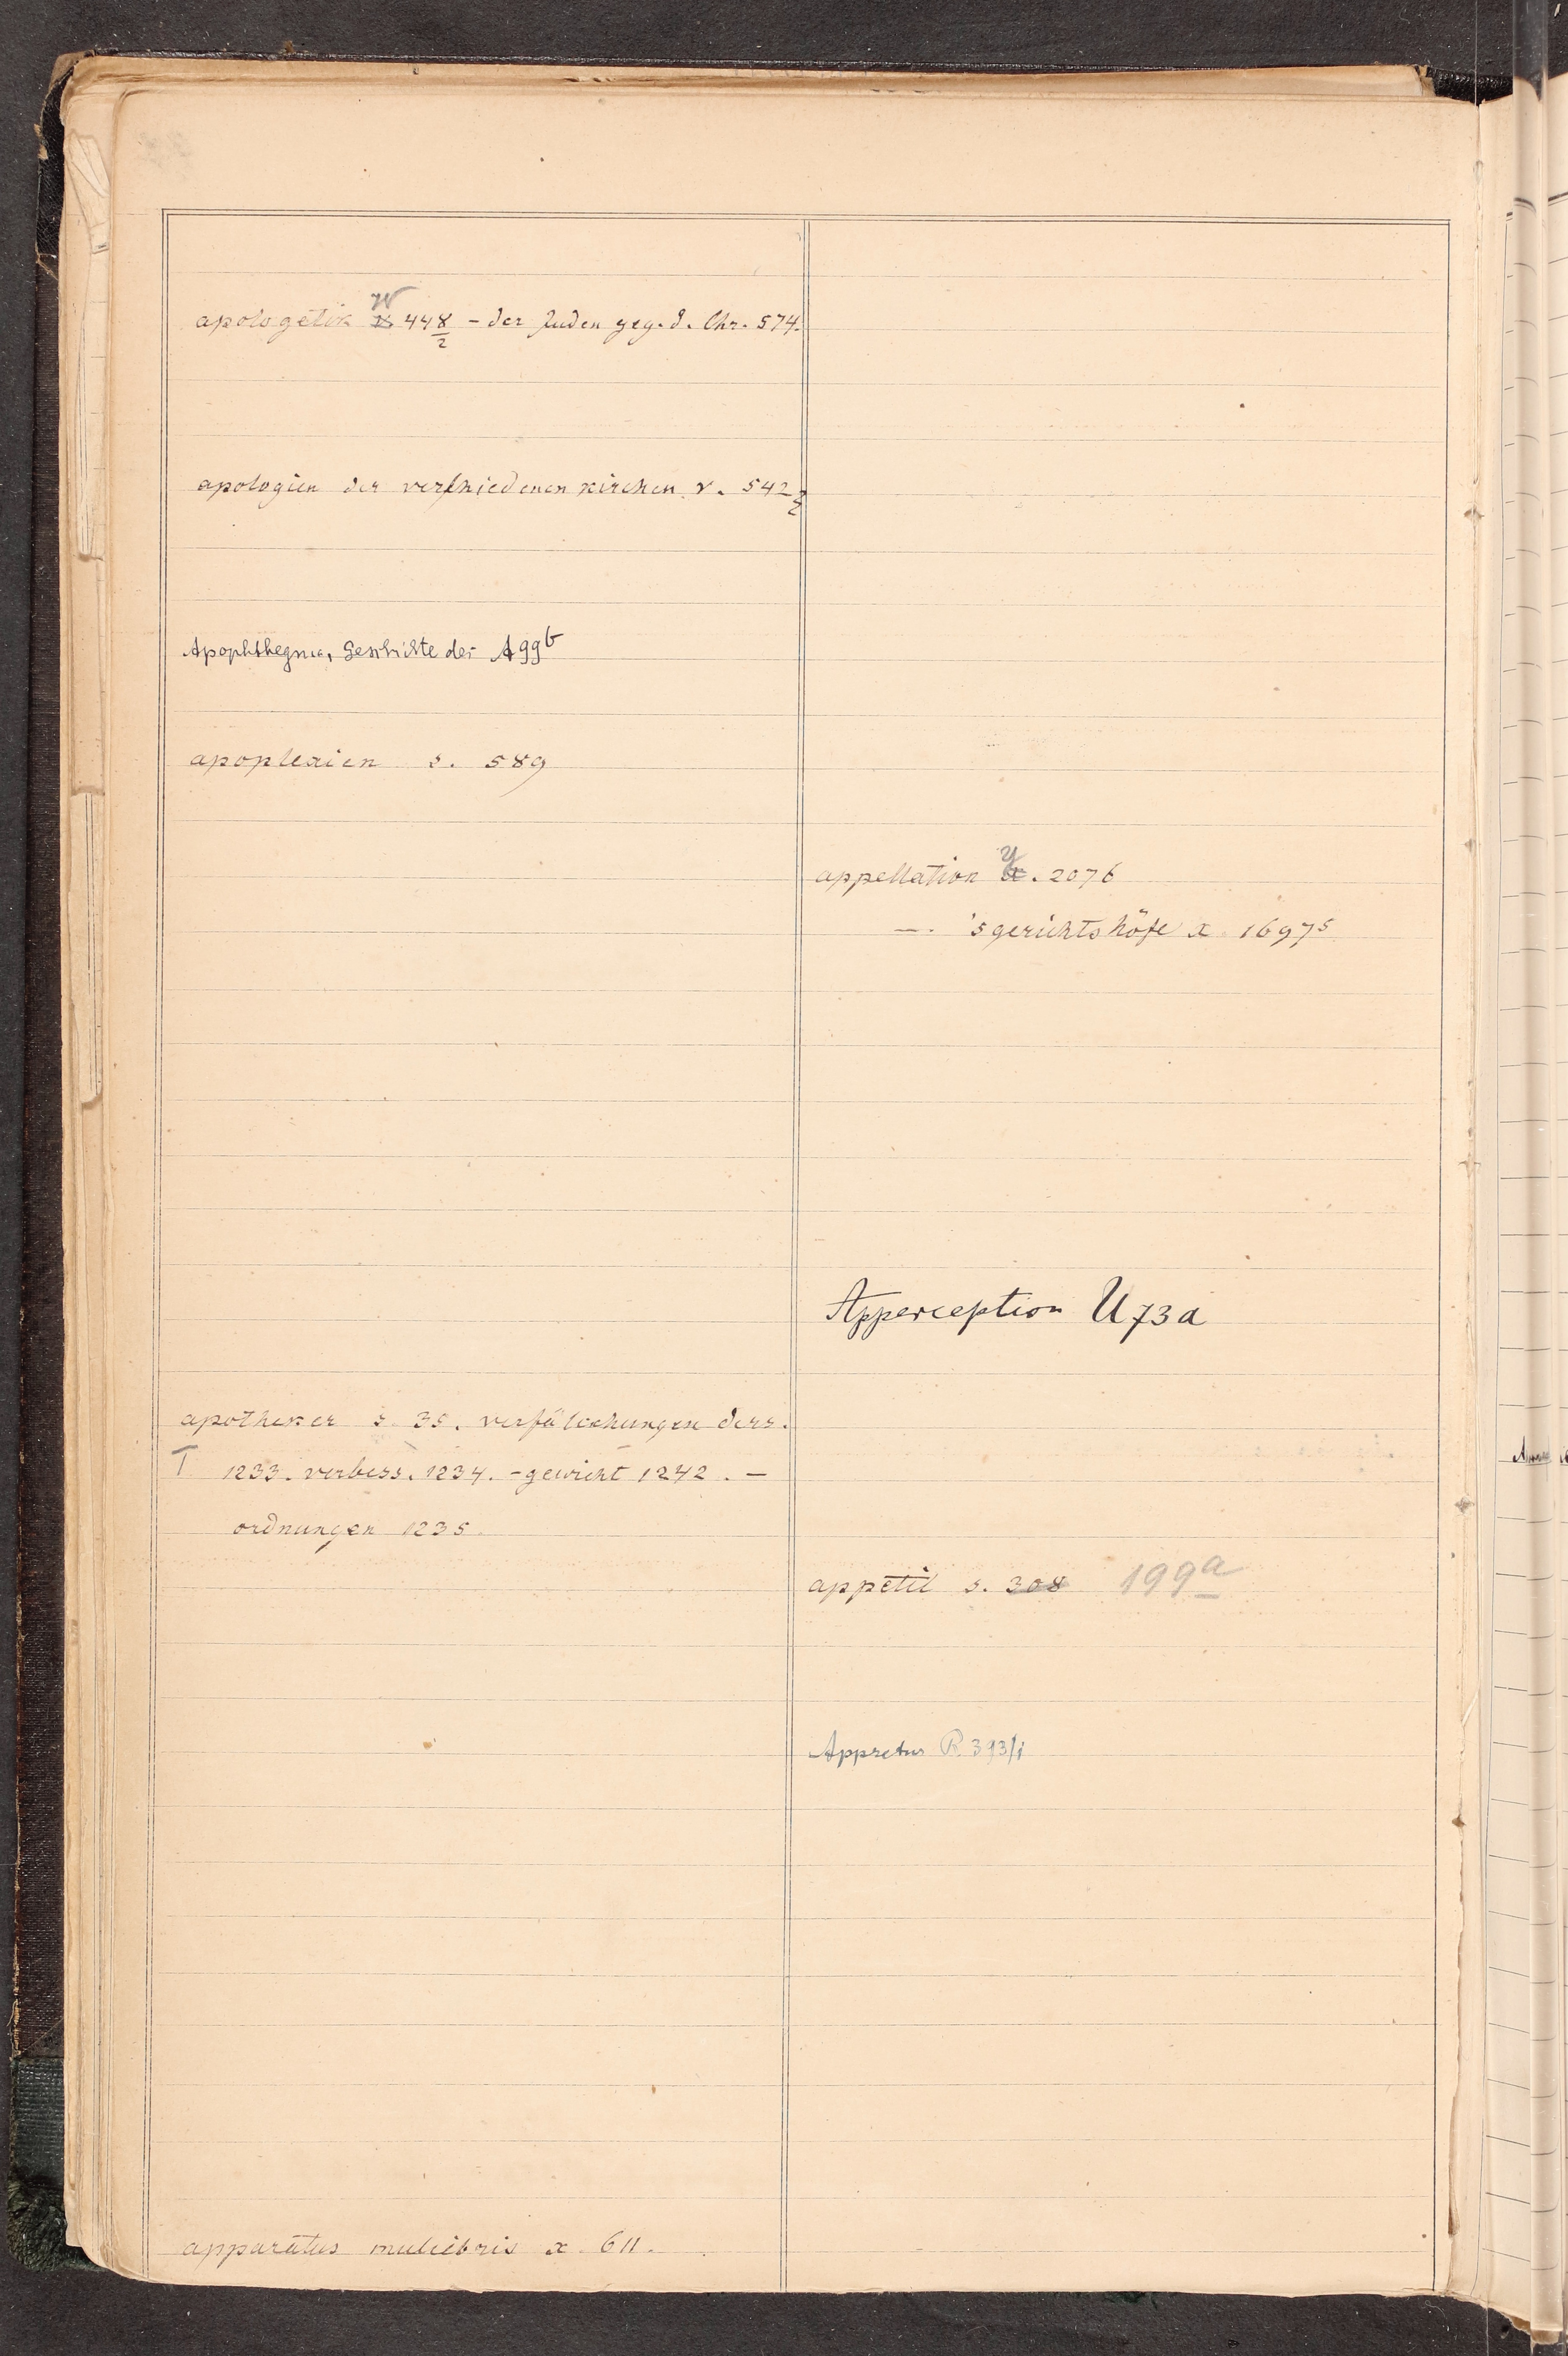 apologetik W 448/2 - der Juden geg. d. Chr. 574.
apologien der verschiedenen kirchen v. 542
Apophthegma, Geschichte der Agg b
apoplexien s. 589
apotheker s. 35. verfälschungen ders.
T 1233. verbess. 1234. - gewicht 1242. -
ordnungen 1235.
apparatus muliebris x. 611.
appellation y. 2076
— 'sgerichtshöfe x 16975
Apperception U 73a
appetit s. 308 199a
Appretur R 393/i